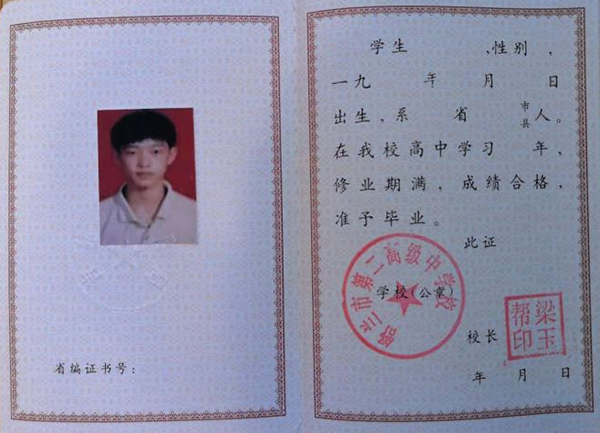 省编证书号：
学生 、性别 ，
一九 年 月 日
出生，系 省 市县 人。
在我校高中学习 年，
修业期满，成绩合格，
准予毕业。
此证
市第二高级中学校
学校(公章)
梁玉帮印
校长
年 月 日